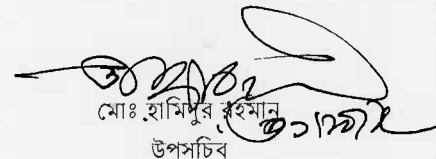 মোঃ হামিদুর রহমান
উপসচিব